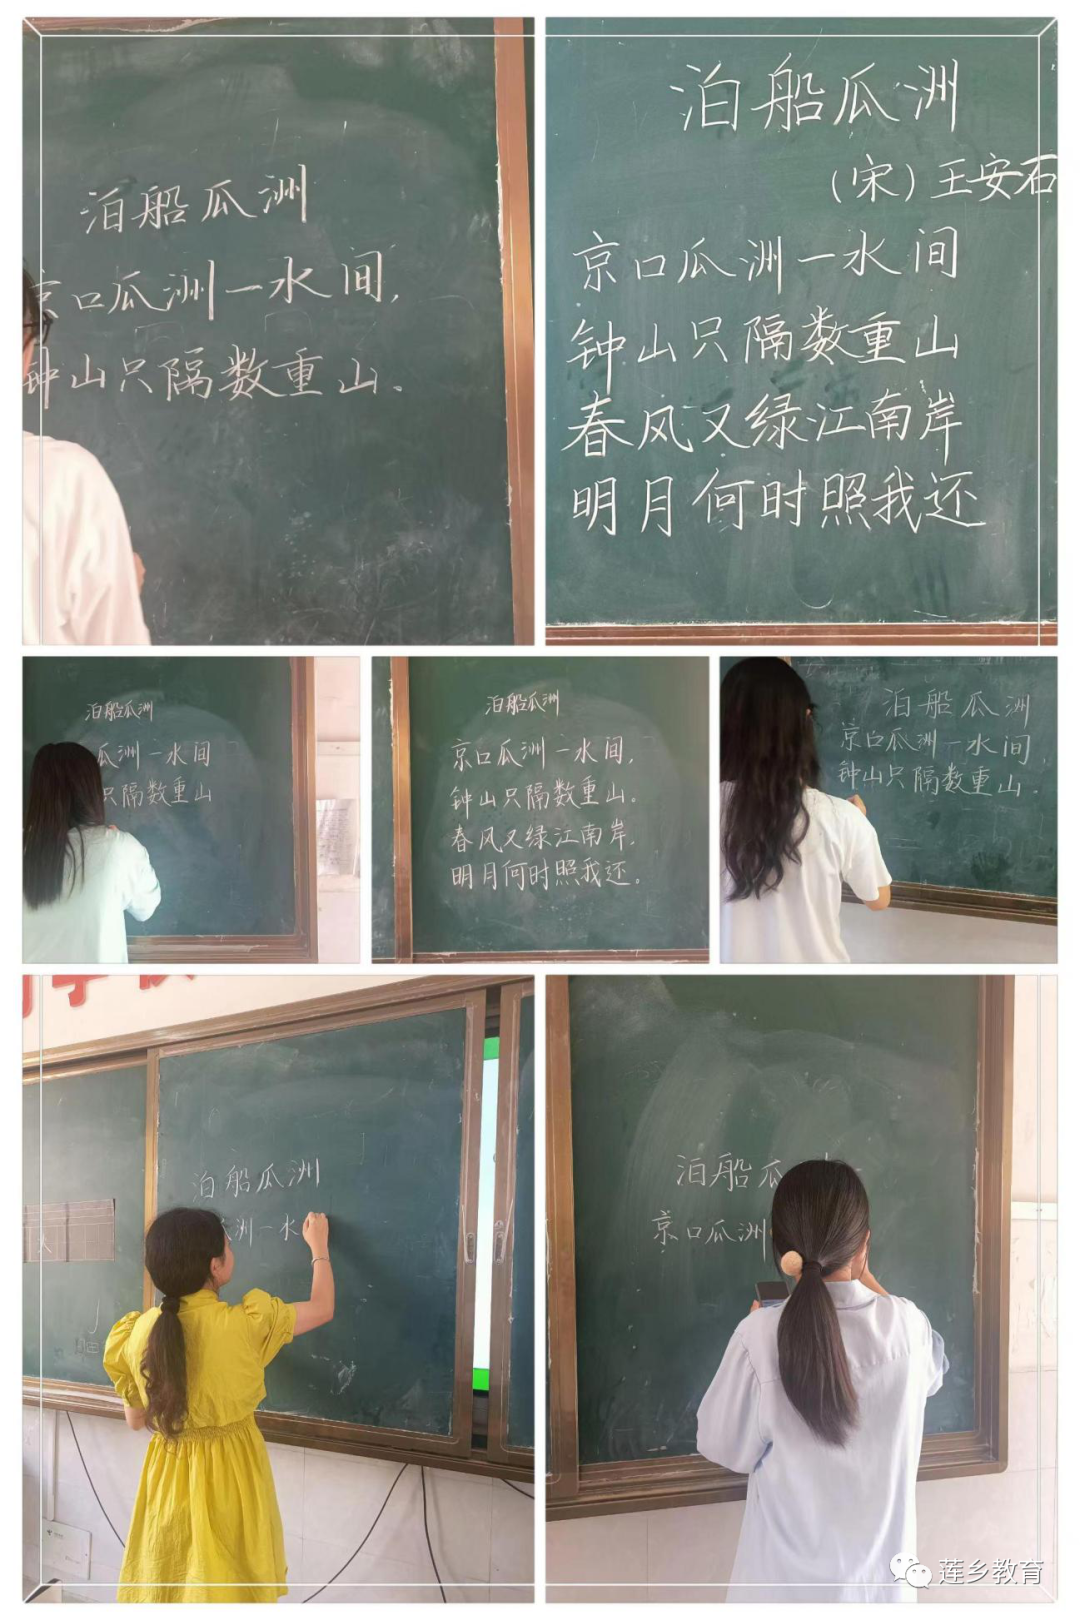 泊船瓜洲
京口瓜洲一水间,
钟山只隔数重山.
泊船瓜洲
(宋)王安石
京口瓜洲一水间
钟山只隔数重山
春风又绿江南岸
明月何时照我还
泊船瓜洲
瓜洲一水间
只隔数重山
泊船瓜洲
京口瓜洲一水间,
钟山只隔数重山。
春风又绿江南岸,
明月何时照我还。
泊船瓜洲
京口瓜洲一水间
钟山只隔数重山.
泊船瓜洲
瓜洲一水
泊船瓜
京口瓜洲
莲乡教育